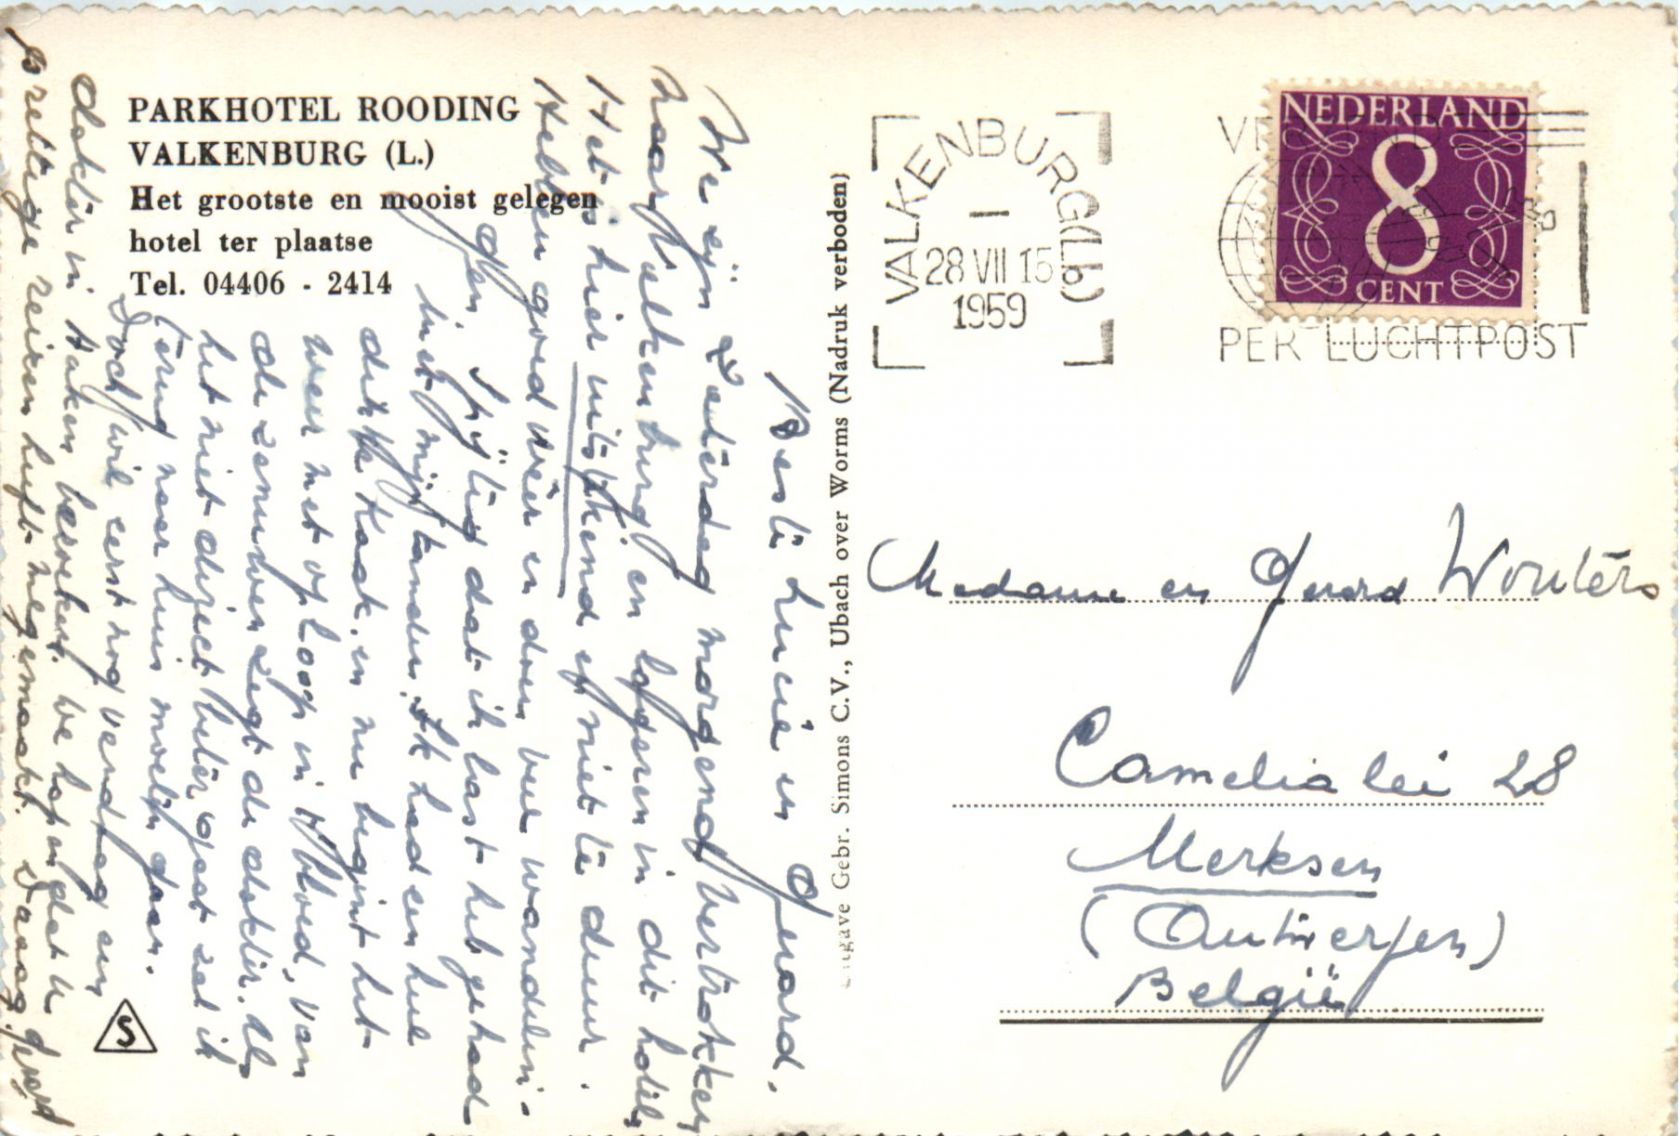 PARKHOTEL ROODING
VALKENBURG (L.)
Het grootste en mooist gelegen
hotel ter plaatse
Tel. 04406 - 2414
Beste Lucie en Gerard,
We zijn Zaterdag morgend vertrokken
naar Valkenburg en logeren in dit hotel,
Het is hier uitstekend en niet te duur.
Hebben goed weer en doen veel wandelin-
gen. Spijtig dat ik last heb gehad
met mijn tanden. Ik had een hele
dikke kaak, en nu begint het
weer met oploop in 't bloed, van
de zenuwen zegt de dokter. Als
het niet direct beter gaat zal ik
terug naar huis moeten gaan.
Doch wil eerst nog vandaag een
dokter in Aken bezoeken. We hopen dat u
prettige reizen heeft meegemaakt. Daag.
Uitgave Gebr. Simons C.V., Ubach over Worms (Nadruk verboden)
VALKENBURG (Lb)
28 VII 15
1959
NEDERLAND
8
CENT
PER LUCHTPOST
Madame en Gerard Wouters
Camelialei 28
Merksen
(Antwerpen)
België
S